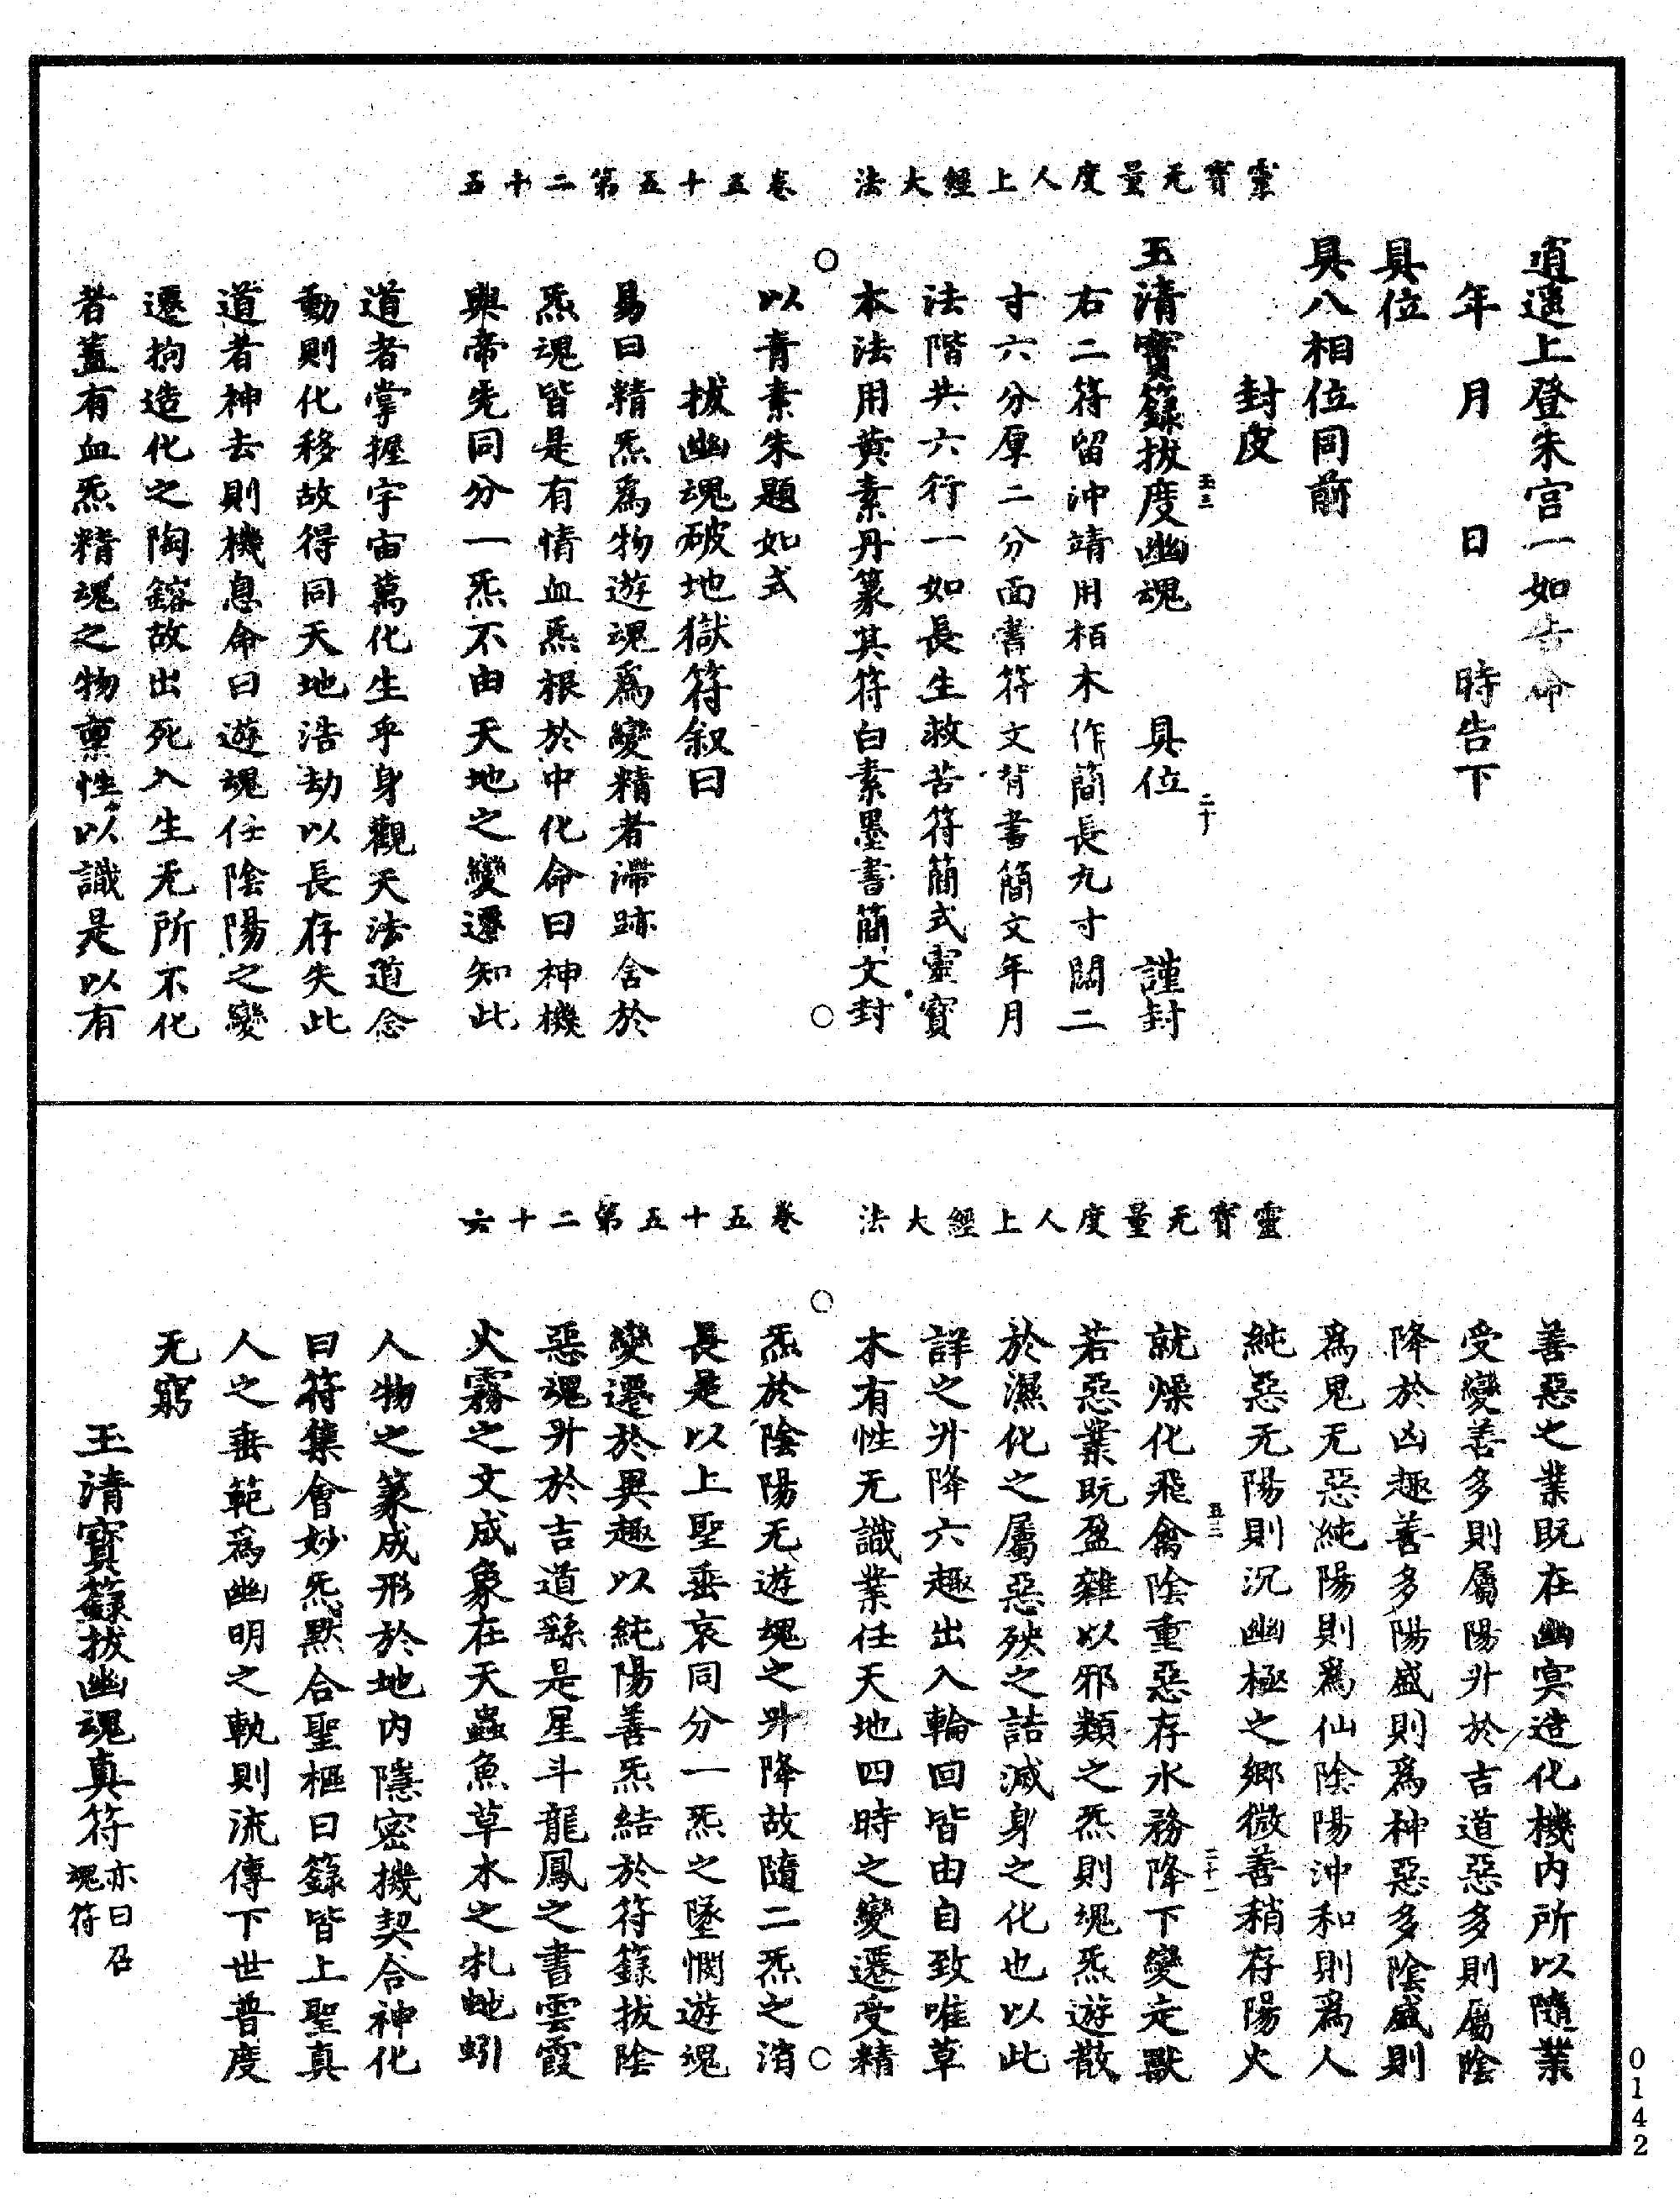 靈寶无量度人上經大法　卷五十五第二十五
逍遥上登朱宫一如告命
年　月　日　時告下
具位
具八相位同前
封皮
五三　二十
玉清寶籙拔度幽魂　具位　謹封
右二符留沖靖用栢木作簡長九寸闊二
寸六分厚二分面書符文背書簡文年月
法階共六行一如長生救苦符簡式靈寶
本法用黄素丹篆其符白素墨書簡文封
以青素朱題如式
拔幽魂破地獄符叙曰
易曰精炁爲物遊魂爲變精者滯跡舍於
炁魂皆是有情血炁根於中化命曰神機
與帝先同分一炁不由天地之變遷知此
道者掌握宇宙萬化生乎身觀天法道念
動則化移故得同天地浩劫以長存失此
道者神去則機息命曰遊魂任陰陽之變
遷拘造化之陶鎔故出死入生无所不化
者蓋有血炁精魂之物稟性以識是以有
靈寶无量度人上經大法　卷五十五第二十六
善惡之業既在幽冥造化機内所以隨業
受變善多則屬陽升於吉道惡多則屬陰
降於凶趣善多陽盛則爲神惡多陰盛則
爲鬼无惡純陽則爲仙陰陽沖和則爲人
純惡无陽則沉幽極之郷微善稍存陽火
五三　二十一
就燥化飛禽陰重惡存水務降下變走獸
若惡業既盈雜以邪類之炁則魂炁遊散
於濕化之屬惡殃之詰滅身之化也以此
詳之升降六趣出入輪回皆由自致唯草
木有性无識業任天地四時之變遷受精
炁於陰陽无遊魂之升降故隨二炁之消
長是以上聖垂哀同分一炁之墜憫遊魂
變遷於異趣以純陽善炁結於符籙拔陰
惡魂升於吉道繇是星斗龍鳳之書雲霞
火霧之文成象在天蟲魚草木之札虵蚓
人物之篆成形於地内隱密機契合神化
曰符集會妙炁黙合聖樞曰籙皆上聖真
人之垂範爲幽明之軌則流傳下世普度
无窮
玉清寶籙拔幽魂真符亦曰召魂符
0142